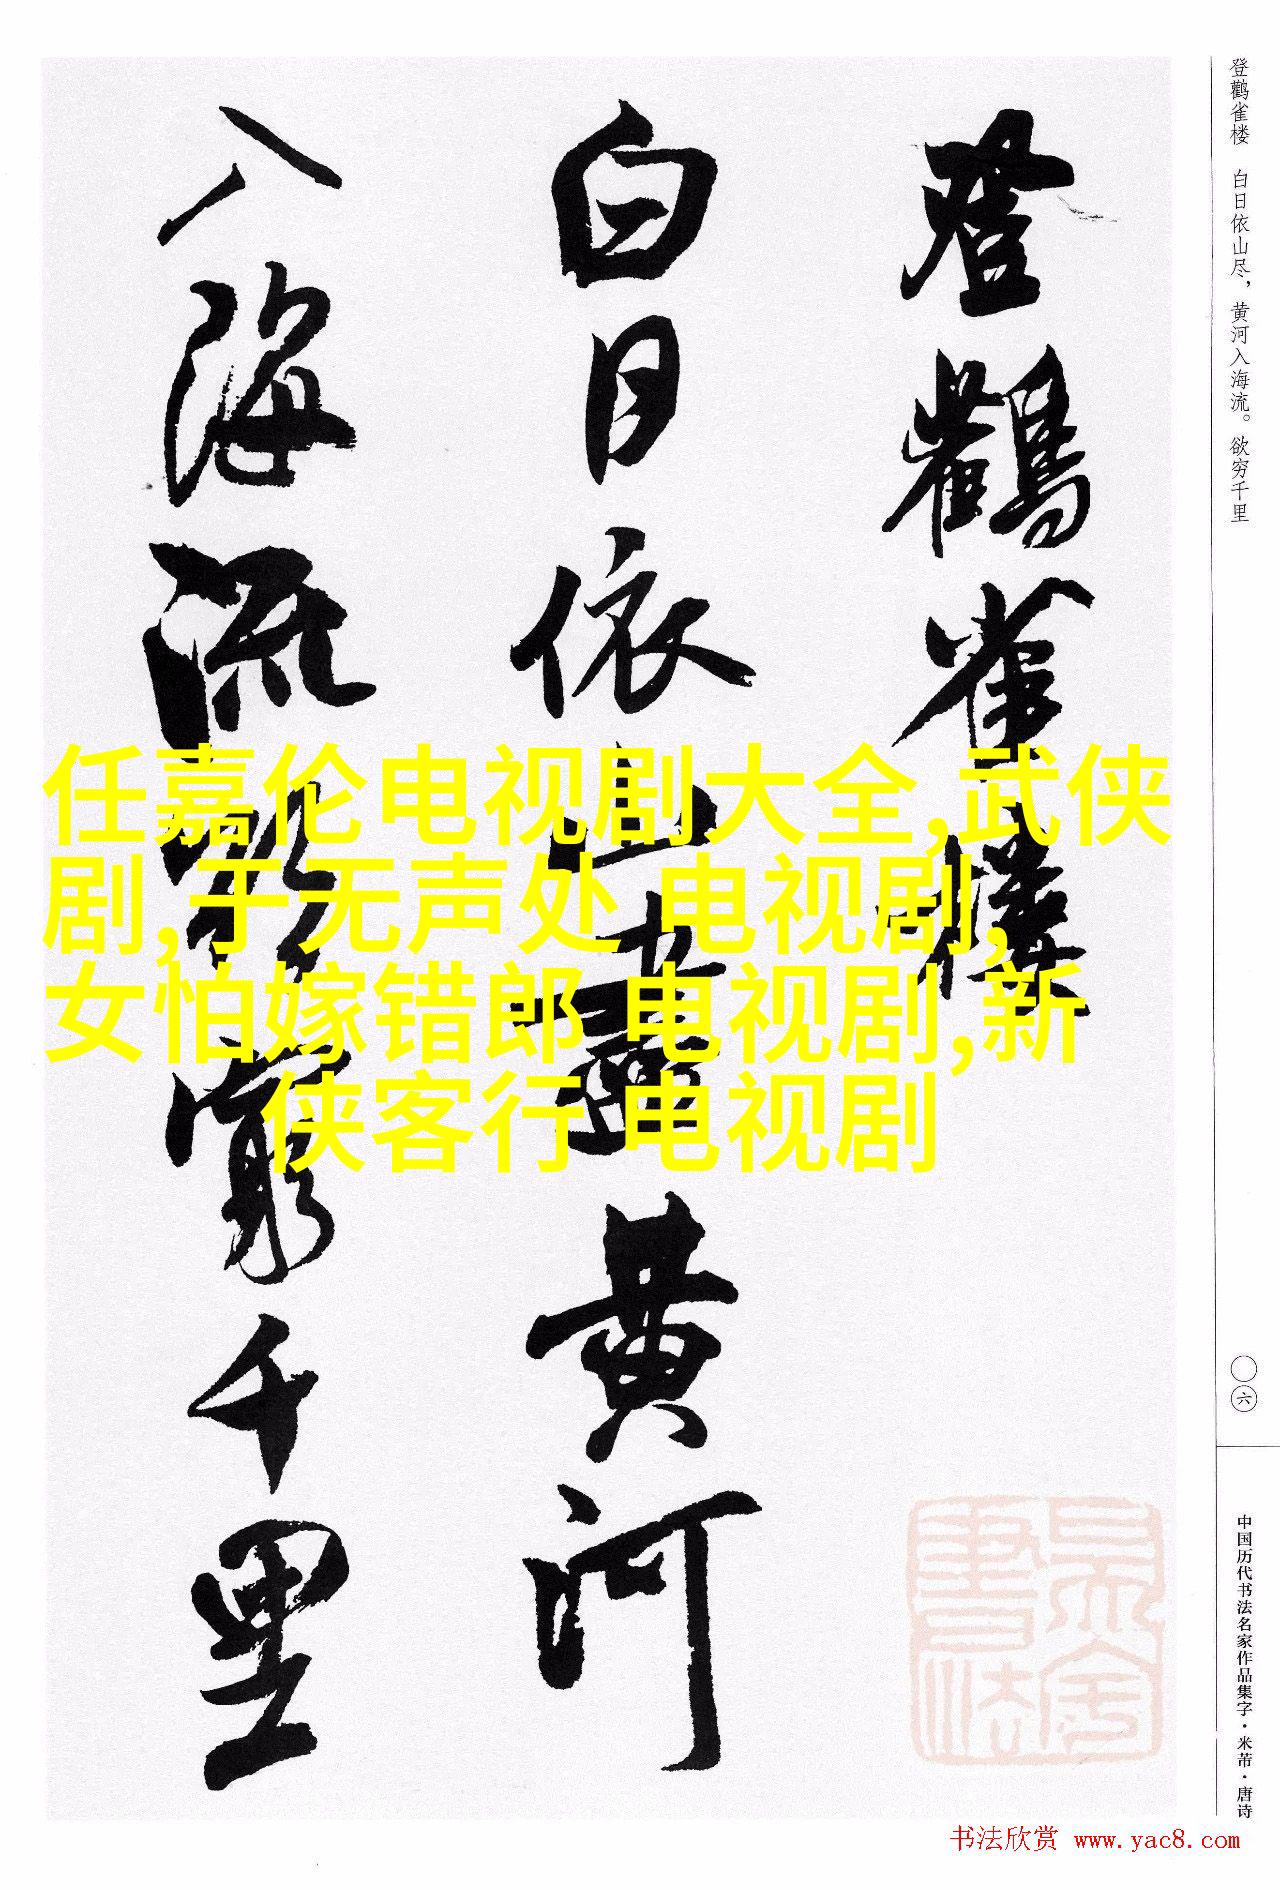 登鹳雀楼 白日依山尽，黄河入海流。欲穷千里
登鸛雀樓
白日依山盡黃河
入海流欲窮千里
任嘉伦电视剧大全,武侠
剧,于无声处 电视剧,
女怕嫁错郎 电视剧,新
侠客行 电视剧
〇六
中国历代书法名家作品集字·米芾·唐诗
书法欣赏 www.yac8.com